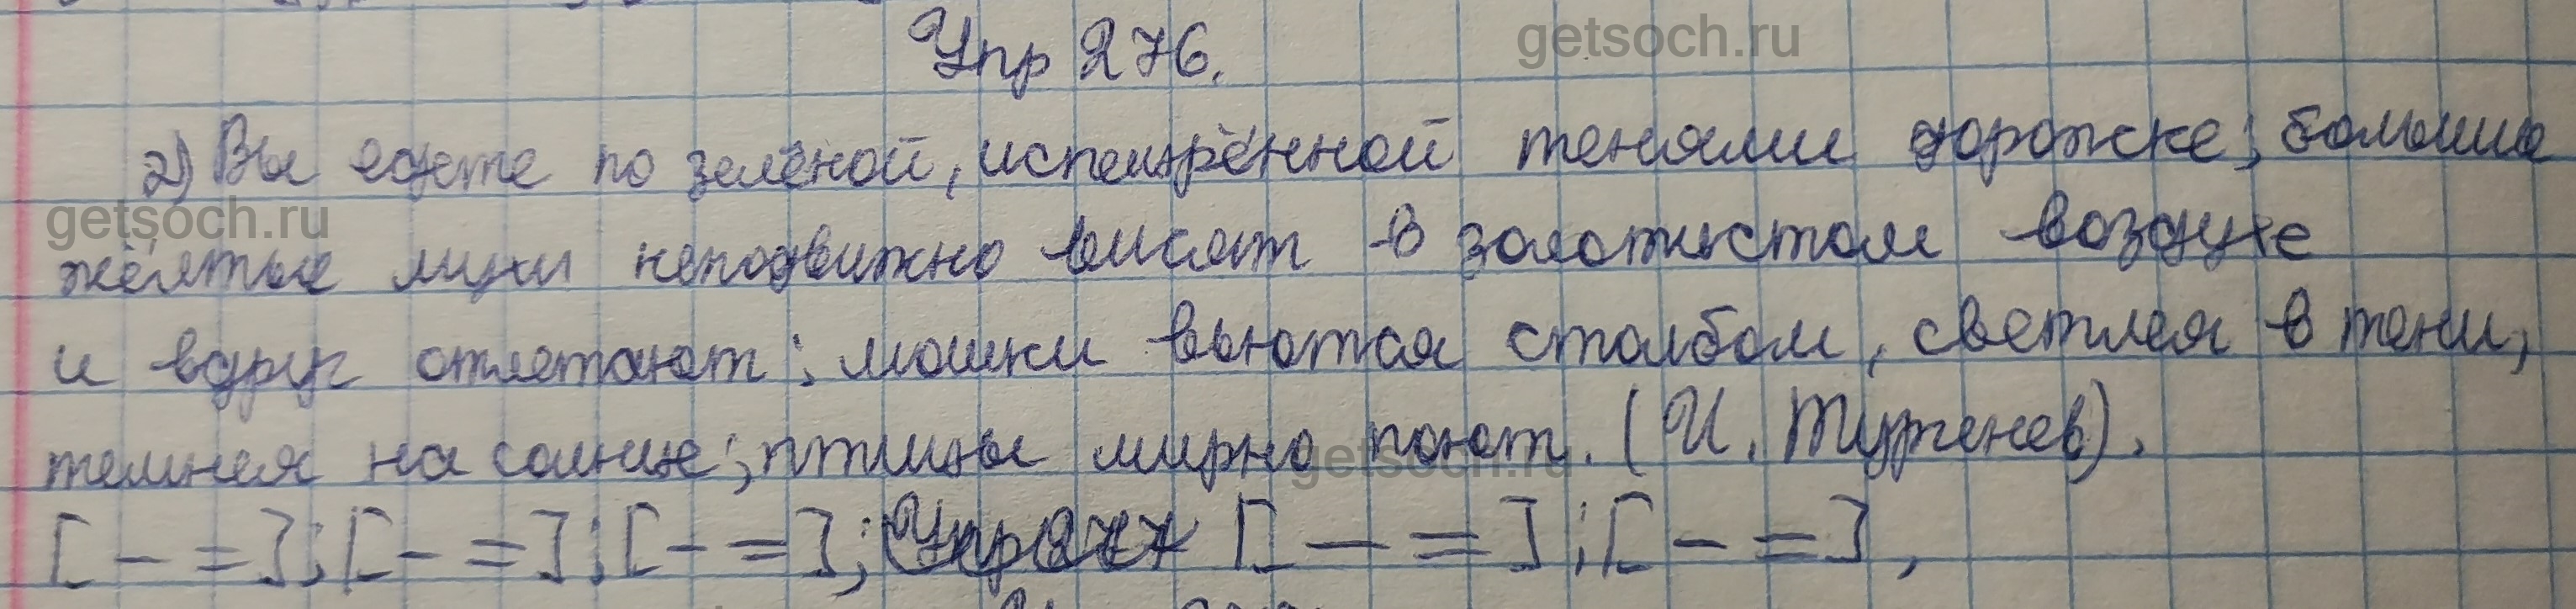 Упр 276.
2) Вы едете по зелёной, испещрённой тенями дорожке; большие
жёлтые мухи неподвижно висят в золотистом воздухе
и вдруг отлетают; мошки вьются столбом, светлея в тени,
темнея на солнце; птицы мирно поют. (И. Тургенев).
[ - = ]; [ - = ]; [ - = ]; Упр 277 [ — = ]; [ - = ],
getsoch.ru
getsoch.ru
getsoch.ru